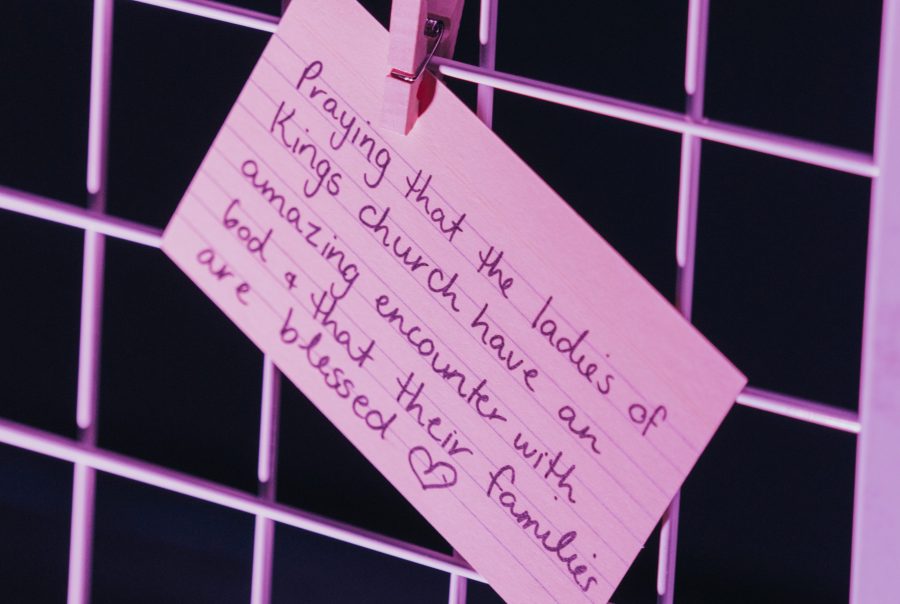 Praying that the ladies of
Kings church have an
amazing encounter with
God & that their families
are blessed ♡